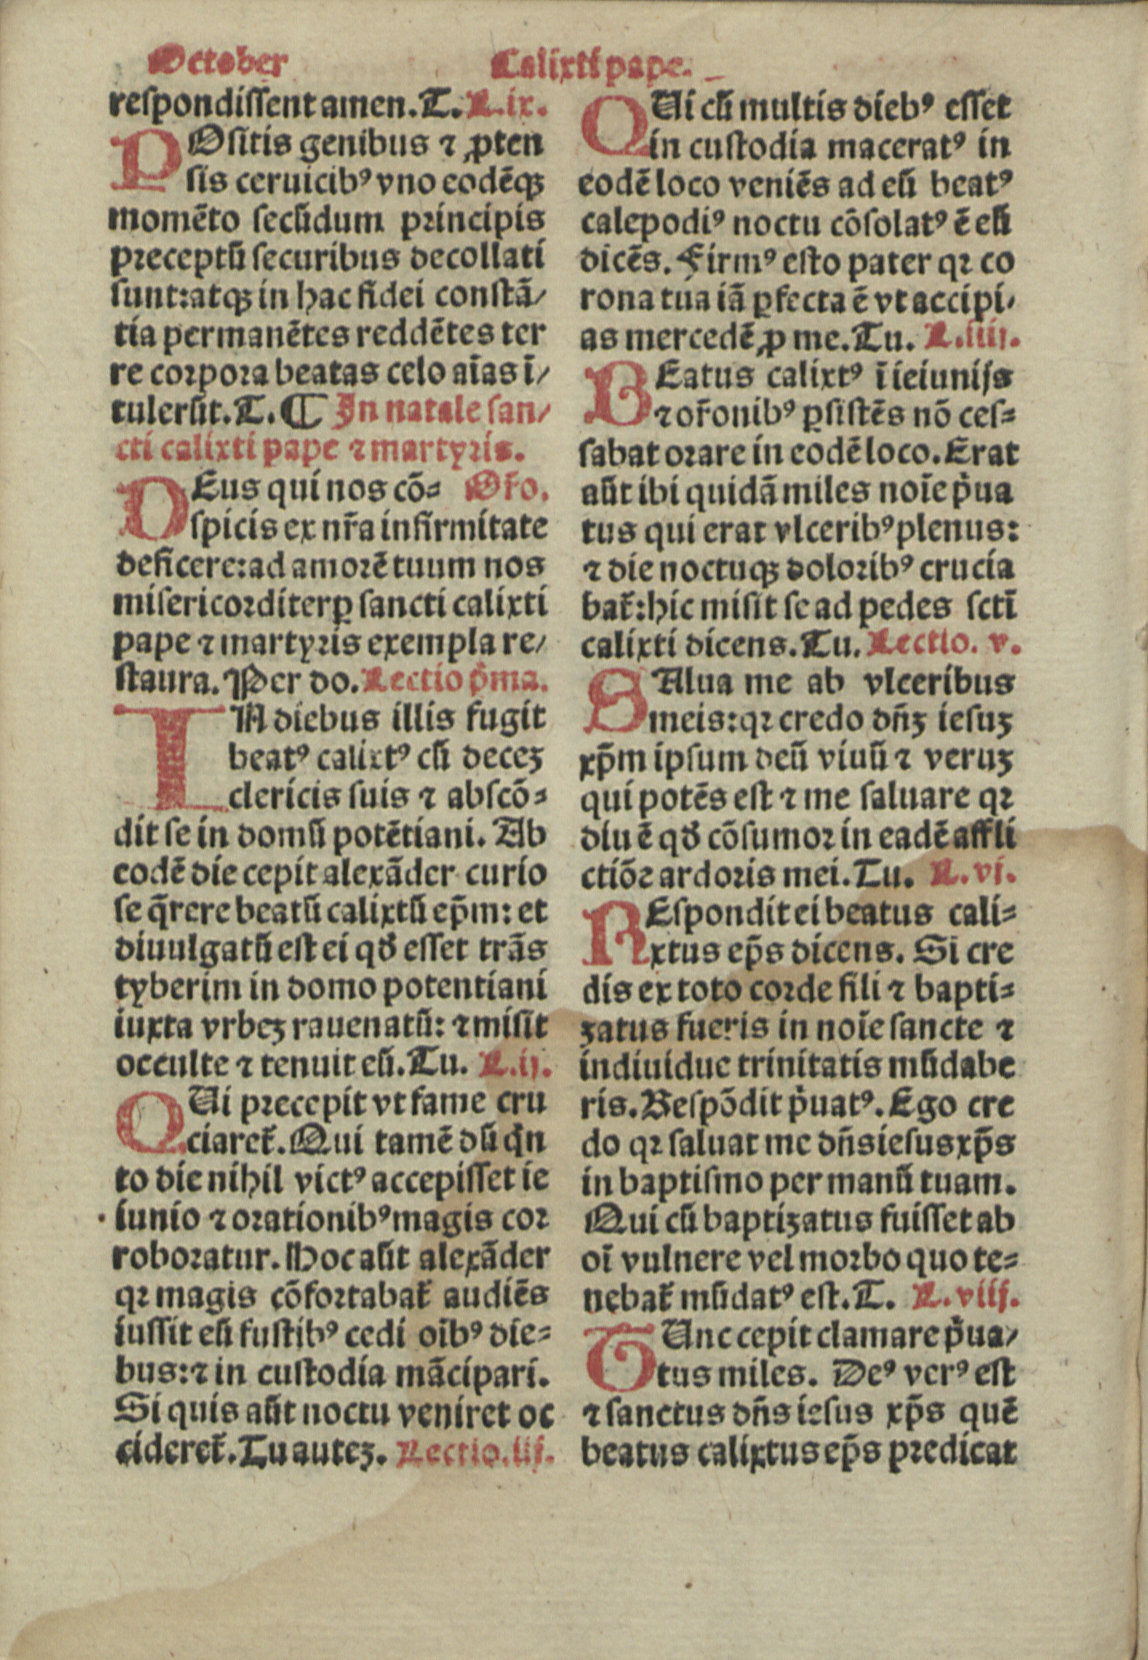 October Calixti pape.
respondissent amen. T. L.ix.
POsitis genibus ⁊ ꝓten
sis ceruicibꝰ vno eodēqꝫ
momēto secūdum principis
preceptū securibus decollati
sunt:atqꝫ in hac fidei constā/
tia permanētes reddētes ter
re corpora beatas celo aīas ī/
tulerūt. T. ¶ In natale san/
cti calixti pape ⁊ martyris.
DEus qui nos cō= Or̄o.
spicis ex nr̄a infirmitate
deficere:ad amorē tuum nos
misericorditer ꝑ sancti calixti
pape ⁊ martyris exempla re/
staura. Per do. Lectio pͥma.
IN diebus illis fugit
beatꝰ calixtꝰ cū deceꝫ
clericis suis ⁊ abscō=
dit se in domū potētiani. Ab
eodē die cepit alexāder curio
se q̄rere beatū calixtū ep̄m: et
diuulgatū est ei qđ esset trās
tyberim in domo potentiani
iuxta vrbeꝫ rauenatū: ⁊ misit
occulte ⁊ tenuit eū. Tu. L.ij.
QUi precepit vt fame cru
ciaret̄. Qui tamē dū qͥn
to die nihil victꝰ accepisset ie
iunio ⁊ orationibꝰ magis cor
roboratur. Hoc aūt alexāder
qꝛ magis cōfortabat̄ audiēs
iussit eū fustibꝰ cedi oībꝰ die=
bus:⁊ in custodia mācipari.
Si quis aūt noctu veniret oc
cideret̄. Tu auteꝫ. Lectio.iij.
QUi cū multis diebꝰ esset
in custodia maceratꝰ in
eodē loco veniēs ad eū beatꝰ
calepodiꝰ noctu cōsolatꝰ ē eū
dicēs. Firmꝰ esto pater qꝛ co
rona tua iā ꝑfecta ē vt accipi/
as mercedē ꝓ me. Tu. L.iiij.
BEatus calixtꝰ ī ieiunijs
⁊ or̄onibꝰ ꝑsistēs nō ces=
sabat orare in eodē loco. Erat
aūt ibi quidā miles noīe pͥua
tus qui erat vlceribꝰ plenus:
⁊ die noctuqꝫ doloribꝰ crucia
bat̄:hic misit se ad pedes sctī
calixti dicens. Tu. Lectio. v.
SAlua me ab vlceribus
meis:qꝛ credo dn̄ꝫ iesuꝫ
xp̄m ipsum deū viuū ⁊ veruꝫ
qui potēs est ⁊ me saluare qꝛ
diu ē qđ cōsumor in eadē affli
ctiōe ardoris mei. Tu. L.vi.
REspondit ei beatus cali=
xtus ep̄s dicens. Si cre
dis ex toto corde fili ⁊ bapti=
zatus fueris in noīe sancte ⁊
indiuidue trinitatis mūdabe
ris. Respōdit pͥuatꝰ. Ego cre
do qꝛ saluat me dn̄s iesus xp̄s
in baptismo per manū tuam.
Qui cū baptizatus fuisset ab
oī vulnere vel morbo quo te=
nebat̄ mūdatꝰ est. T. L.viij.
TUnc cepit clamare pͥua/
tus miles. Deꝰ verꝰ est
⁊ sanctus dn̄s iesus xp̄s quē
beatus calixtus ep̄s predicat